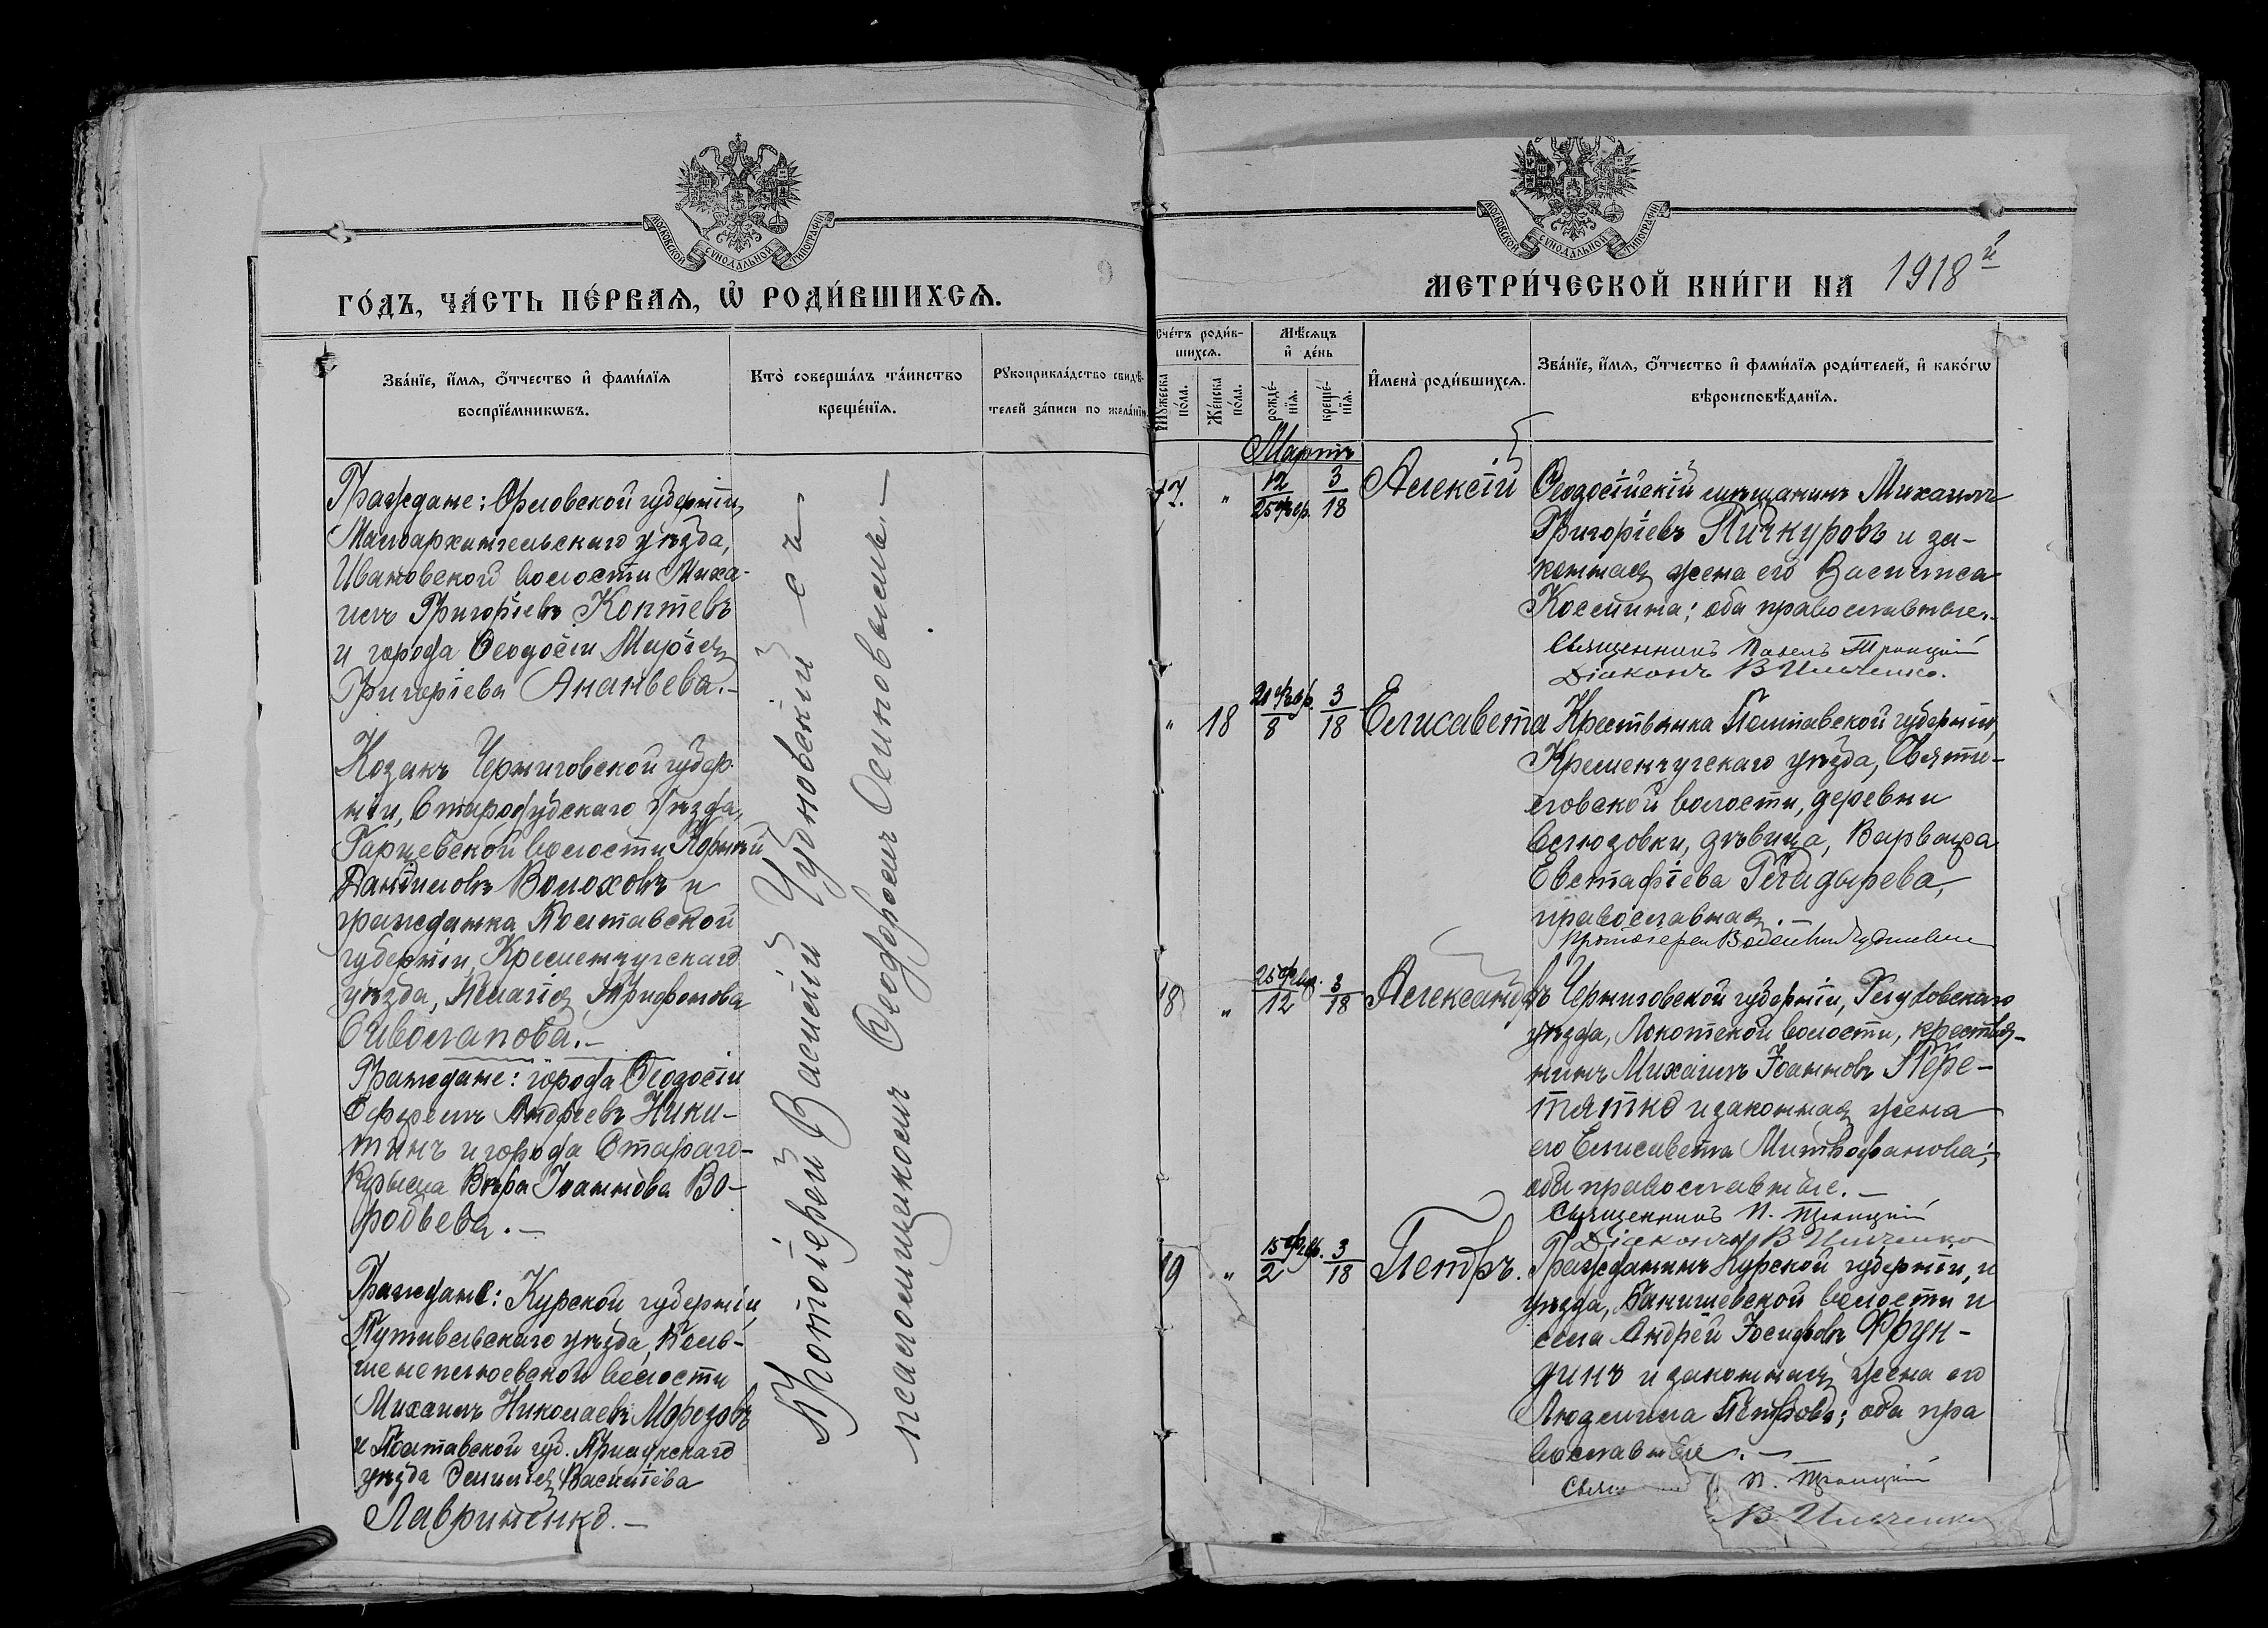 МОСКОВСКОЙ СѴНОДАЛЬНОЙ ТИПОГРАФІИ
ГО́ДЪ, ЧА́СТЬ ПЕ́РВАЯ, Ѡ҆ РОДИ́ВШИХСЯ.
Зва́нїе, и҆́мя, ѻ҆́тчество и҆ фами́лїя
воспрїе́мникѡвъ.
Кто̀ соверша́лъ та́инство
креще́нїя.
Рꙋкоприкла́дство свидѣ́-
телей за́писи по жела́нїю
Граждане: Орловской губерніи,
Малоархангельскаго уѣзда,
Ивановской волости Миха-
илъ Григоріевъ Коптевъ
и города Ѳеодосіи Марія
Григоріева Ананьева.-
Козакъ Черниговской губер-
ніи, Стародубскаго уѣзда,
волости
Волоховъ и
гражданка Полтавской
губерніи, Кременчугскаго
уѣзда, Пелагія Трифонова
Сиволапова.-
Граждане: города Ѳеодосіи
Ефремъ Андреевъ Ники-
тинъ и города Стараго-
Крыма Вѣра Іоаннова Во-
робьева.-
Граждане: Курской губерніи,
Путивльскаго уѣзда,
волости
Михаилъ Николаевъ Морозовъ
и Полтавской губ. Прилукскаго
уѣзда Васильева
Лавриненко.-
Протоіерей Василій Чудновскій съ
псаломщикомъ Ѳеодоромъ Осиповымъ
МОСКОВСКОЙ СѴНОДАЛЬНОЙ ТИПОГРАФІИ
МЕТРИ́ЧЕСКОЙ КНИ́ГИ НА 1918й
Сче́тъ роди́в-
шихся.
Мꙋ́жеска по́ла.
Же́нска по́ла.
Мѣ́сяцъ
и҆ де́нь
рожде́-нїя.
креще́-нїя.
И҆мена̀ роди́вшихся.
Зва́нїе, и҆́мя, ѻ҆́тчество и҆ фами́лїя роди́телей, и҆ како́гѡ
вѣроисповѣ́данїя.
Мартъ
17. " 12/25 февр. 3/18 Алексій Ѳеодосійскій мѣщанинъ Михаилъ
Григоріевъ Пичкуровъ и за-
конная жена его Василиса
Космина; оба православные.-
Священникъ Павелъ Троицкій
Діаконъ В Ильченко.
" 18 3/18 Елисавета Крестьянка Полтавской губерніи,
Кременчугскаго уѣзда, Святи-
ловской волости, деревни
дѣвица, Варвара
Евстафіева
православная.-
Протоіерей Василій Чудновскій
18 " 25 февр./12 3/18 Александръ Черниговской губерніи, Глуховскаго
уѣзда, Локотской волости, крестья-
нинъ Михаилъ Іоанновъ Пере-
тятко и законная жена
его Елисавета Митрофанова;
оба православные.-
Священникъ П. Троицкій
Діаконъ В Ильченко
19 " 15 февр./2 3/18 Петръ. Гражданинъ Курской губерніи, и
уѣзда, волости и
села Андрей Іосифовъ Фрун-
динъ и законная жена его
Людмила Петрова; оба пра
вославные.-
П. Троицкій
В. Ильченко